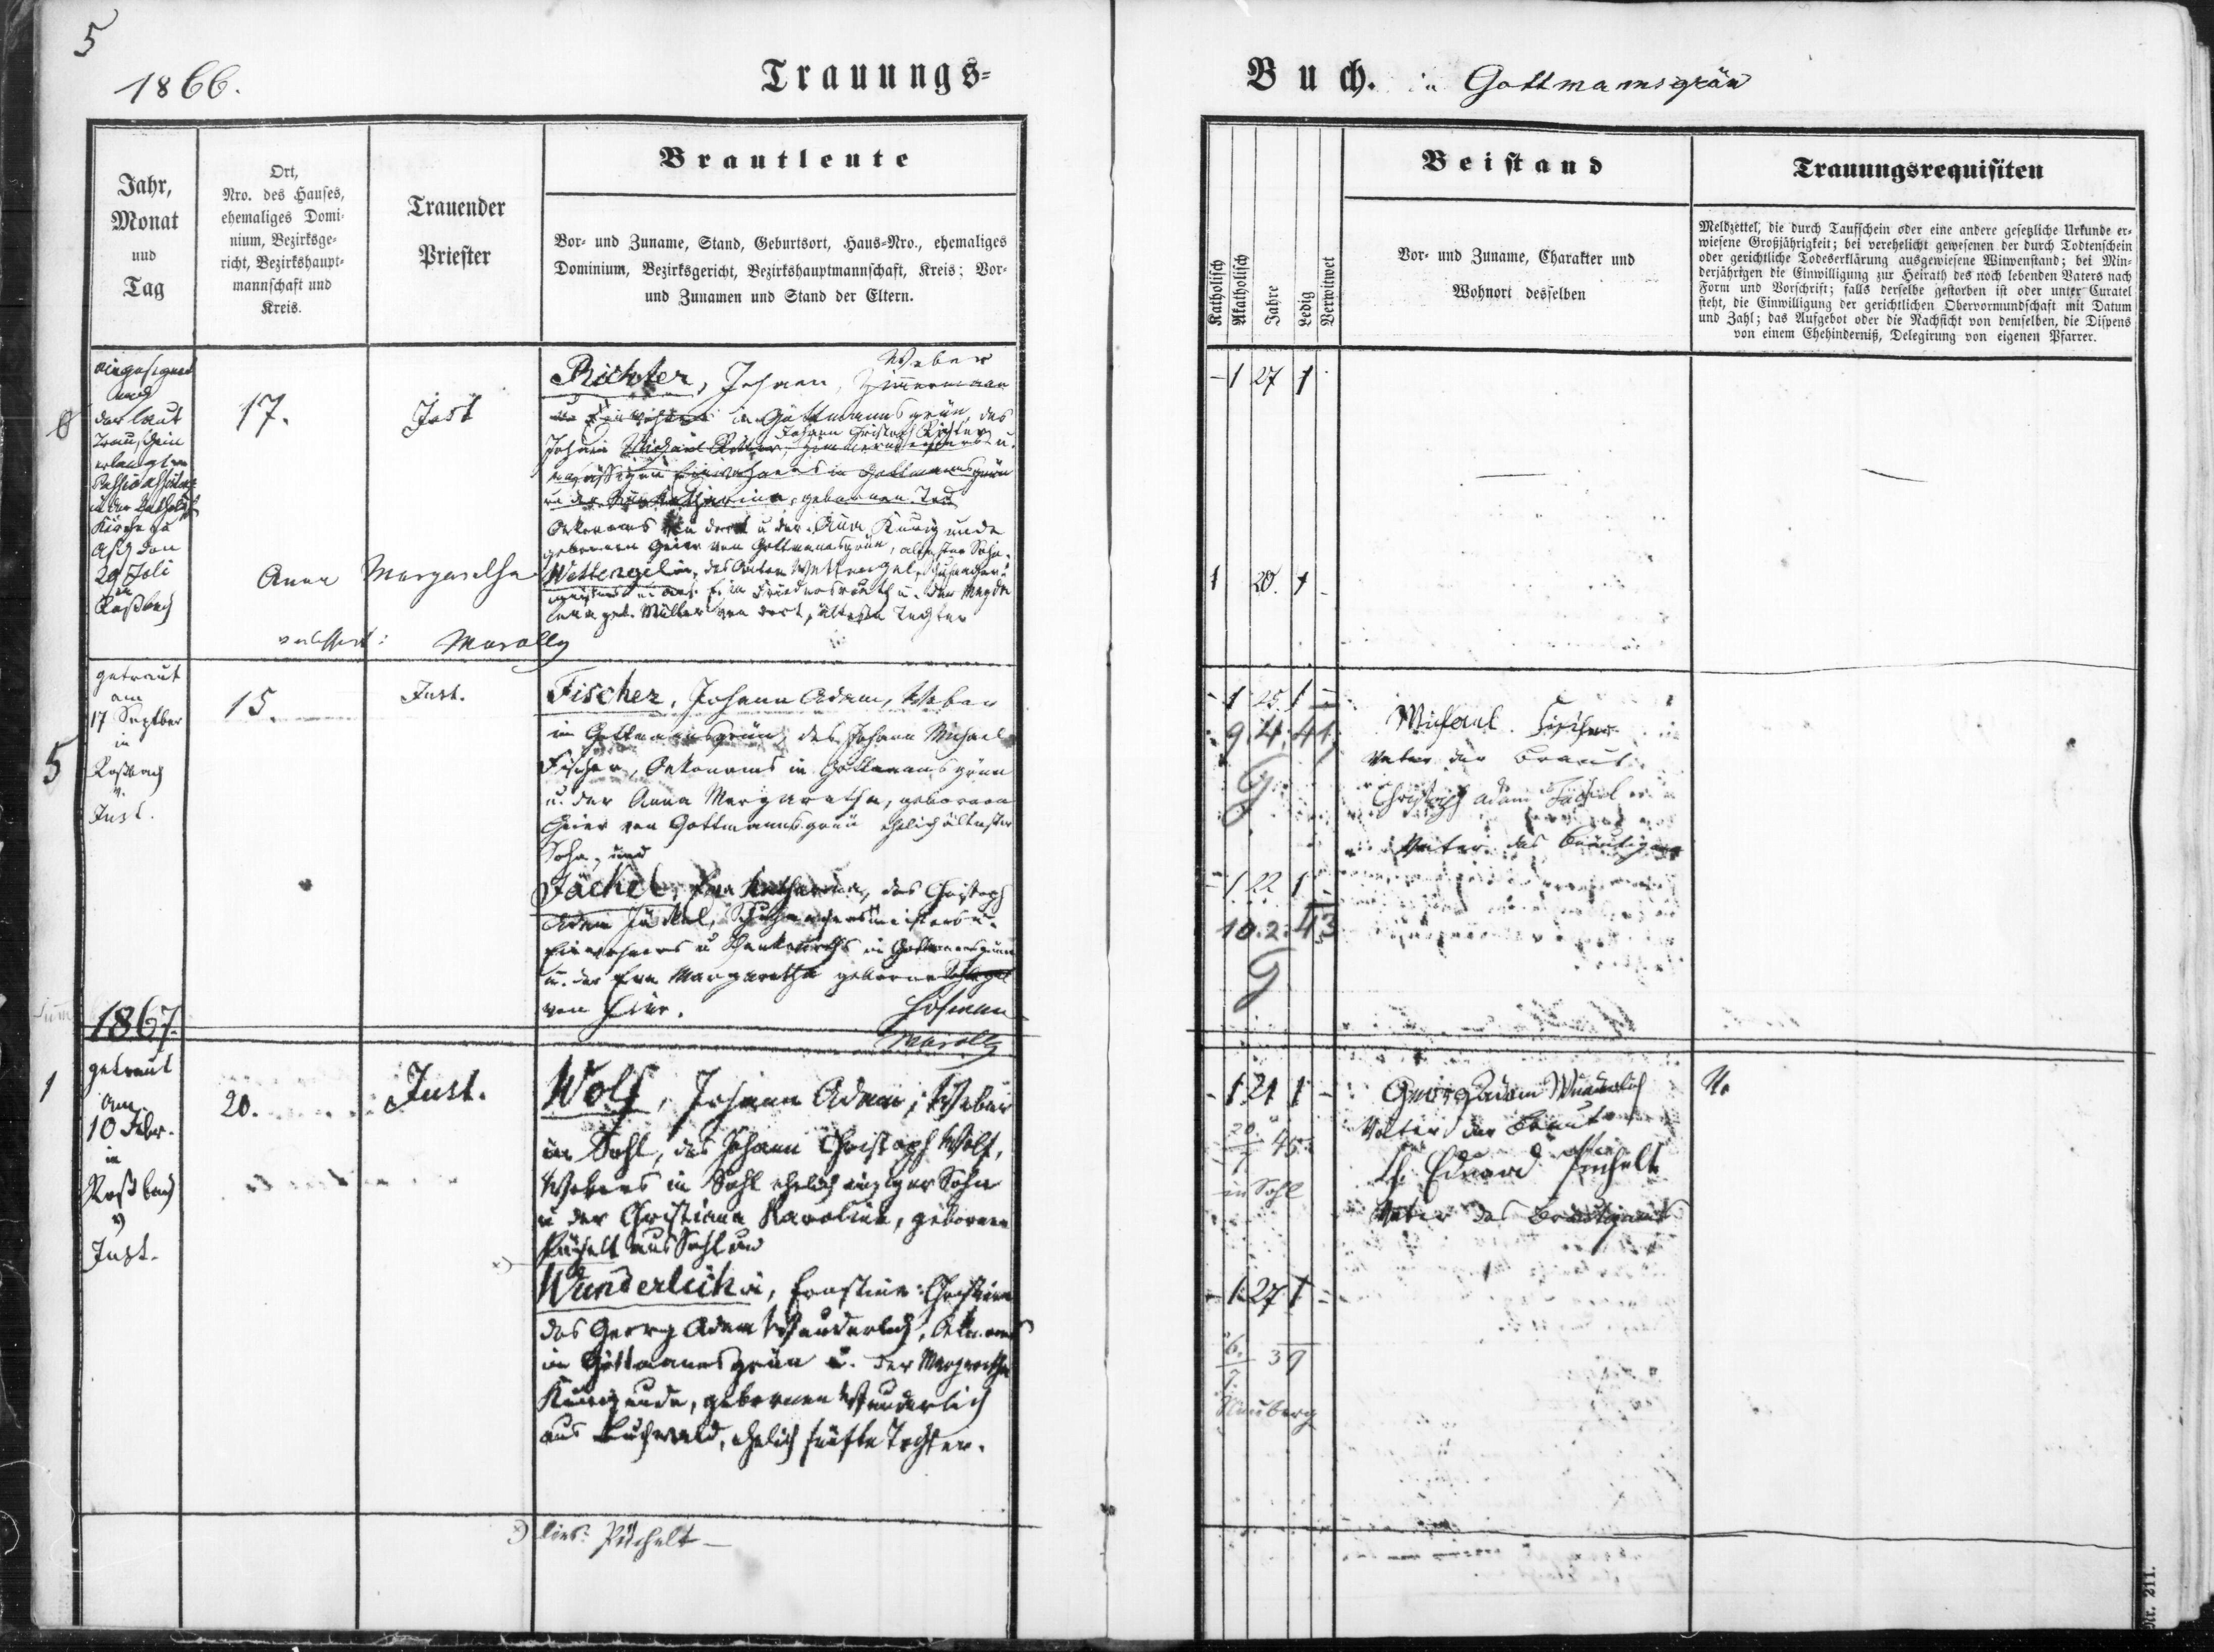 5
1866.
Trauungs-
Buch. in Gottmannsgrün
Jahr,
Monat
und
Tag
Ort,
Nro. des Hauses,
ehemaliges Domi-
nium, Bezirksge-
richt, Bezirkshaupt-
mannschaft und
Kreis.
Trauender
Priester
Brautleute
Vor- und Zuname, Stand, Geburtsort, Haus-Nro., ehemaliges
Dominium, Bezirksgericht, Bezirkshauptmannschaft, Kreis; Vor-
und Zunamen und Stand der Eltern.
Katholisch
Akatholisch
Jahre
Ledig
Verwitwet
Beistand
Vor- und Zuname, Charakter und
Wohnort desselben
Trauungsrequisiten
Meldzettel, die durch Taufschein oder eine andere gesetzliche Urkunde er-
wiesene Großjährigkeit; bei verehelicht gewesenen der durch Todtenschein
oder gerichtliche Todeserklärung ausgewiesene Witwenstand; bei Min-
derjährigen die Einwilligung zur Heirath des noch lebenden Vaters nach
Form und Vorschrift; falls derselbe gestorben ist oder unter Curatel
steht, die Einwilligung der gerichtlichen Obervormundschaft mit Datum
und Zahl; das Aufgebot oder die Nachsicht von demselben, die Dispens
von einem Ehehinderniß, Delegirung von eigenen Pfarrer.
eingesegnet
und
der laut
Trauschein
erlangten
in der katholisch
Kirche zu
Asch den
29 Juli
in
Roßbach
17.
Just
Weber
Richter, Johann, Zimmermann
in Gottmannsgrün, des
Johann Christoph Richter
Johann
Einwohners in Gottmannsgrün
Katharina, gebornen
Oekonoms von dort u der Anna Kunigunde
gebornen Geier von Gottmannsgrün, ältester Sohn.
Anna Margaretha Wettengelin, des Anton Wettengel,
Friedersreuth u. der Magda
lena geb. Müller von dort, älteste Tochter
verlesen: Marolly
- 1 27 1
1 20. 1
getraut
am
17 Septber
in
Roßbach
v.
Just.
5
15.
Just.
Fischer, Johann Adam, Weber
in Gottmannsgrün, des Johann Michael
Fischer, Oekonoms in Gottmannsgrün
u. der Anna Margaretha, gebornen
Geier von Gottmannsgrün ehelich ältester
Sohn, und
Jäckel, Eva Katharina, des Christoph
Adam Jäckel, Schuhmachermeisters u.
Einwohners u Schenkwirths in Gottmannsgrün
u. der Eva Margaretha geborne Schlegel
von hier. Hofmann
Marolly
- 1 25 1 -
9. 4. 41
G
- 1 22 1 -
10. 2. 43
G
Michael Fischer
Vater der Braut
Christoph Adam Jäckel
Vater des Bräutigams
1867.
1
getraut
am
10 Febr.
in
Roßbach
v
Just.
20.
Just.
Wolf, Johann Adam, Weber
in Sohl, des Johann Christoph Wolf,
Webers in Sohl ehelich einziger Sohn
u der Christiana Karolina, gebornen
Püchelt aus Sohl und
Wunderlich, Ernstine Christine
des Georg Adam Wunderlich, Oekonoms
in Gottmannsgrün u. der Margaretha
Kunigunde, gebornen Wunderlich
aus Buchwald, ehelich fünfte Tochter.
- 1 21 1 -
20
1 45
in Sohl
- 1 27 1 -
6.
7. 39
Neuberg
Georg Adam Wunderlich
Vater der Braut
Eduard Püchelt
Vater des Bräutigams
N.
lies: Püchelt
Nr. 211.